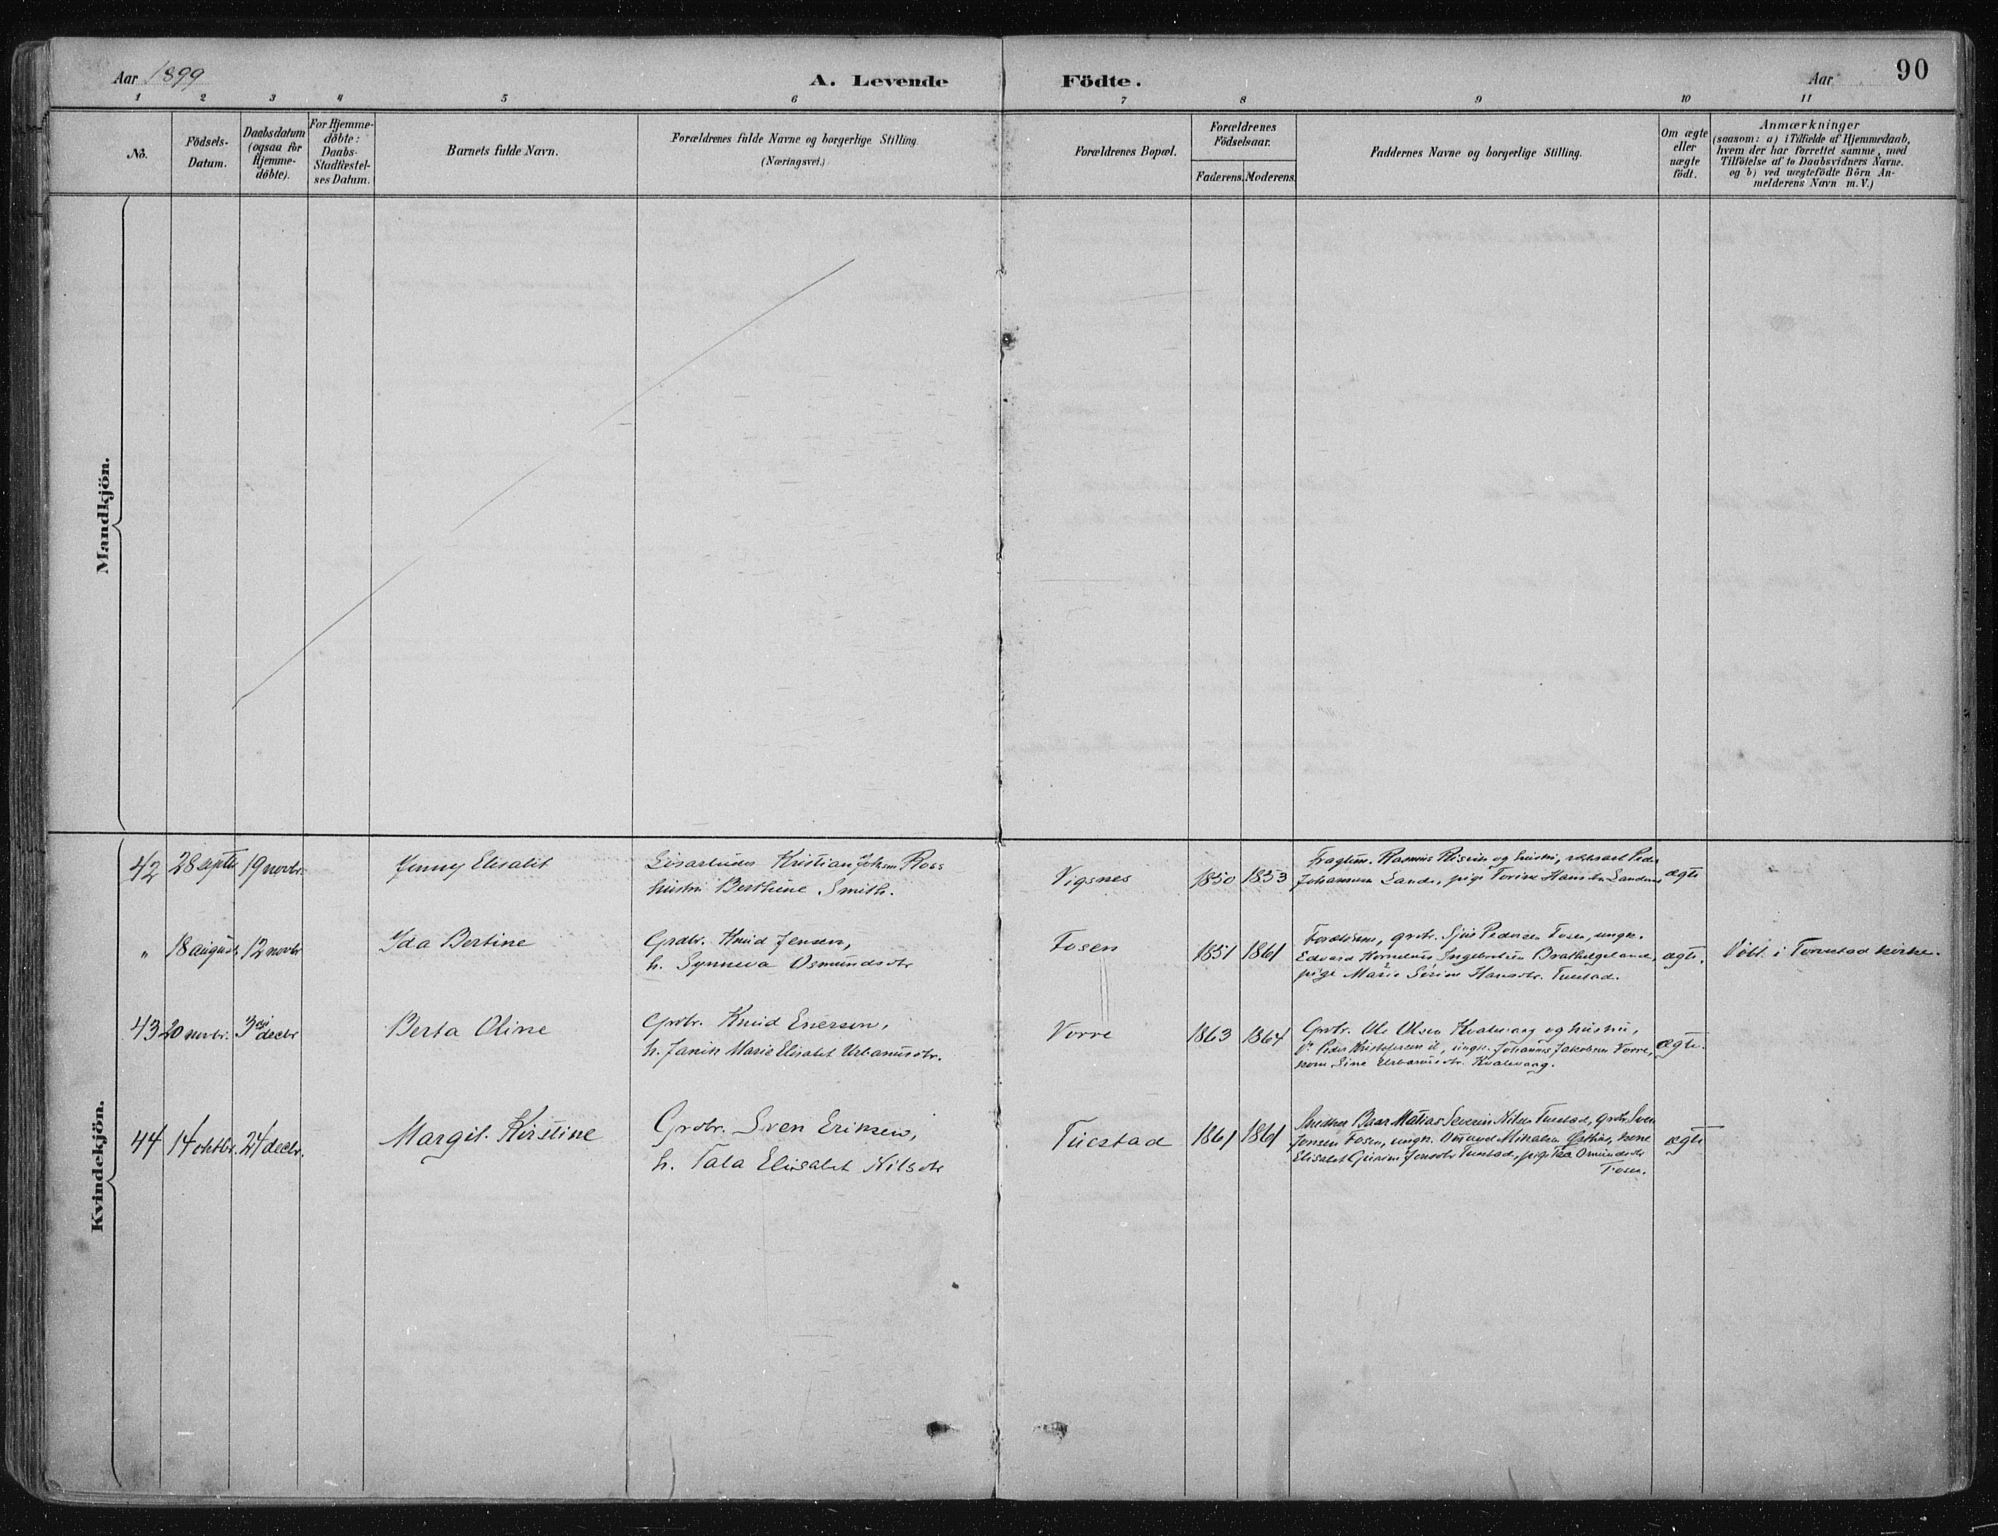 Aar 1899
A. Levende Födte.
Aar
90
1 2 3 4 5 6 7 8 9 10 11
No.
Födsels-
Datum.
Daabsdatum
(ogsaa for
Hjemme-
döbte).
For Hjemme-
döbte:
Daabs-
Stadfæstel-
ses Datum.
Barnets fulde Navn.
Forældrenes fulde Navne og borgerlige Stilling.
(Næringsvei.)
Forældrenes Bopæl.
Forældrenes
Födselsaar.
Faderens. Moderens.
Faddernes Navne og borgerlige Stilling.
Om ægte
eller
uægte
födt.
Anmærkninger
(saasom: a) i Tilfælde af Hjemmedaab,
hvem der har forrettet samme, med
Tilföielse af to Daabsvidners Navne.
og b) ved uægtefödte Börn An-
melderens Navn m. V.)
Mandkjön.
Kvindekjön.
42 28 septb 19 novbr. Jenny Elisabet
Kristian Johsen
hustru Berthine Smith.
Vigsnes 1850 1853
Rasmus og hustru, Peder
Johannesen Sande, pige Torine
ægte
" 18 august 12 novbr Ida Bertine
Grdbr. Knud Jensen,
h. Synneva Osmundsdtr
Fosen 1851 1861
Forældrene, grdbr. Sjur Pedersen Fosen, ungk.
Edvard Kornelius Ingebretsen Brathelgeland,
pige Marie Serine Hansdtr. Tuestad.
ægte. Döbt i Torvestad kirke.
43 20 novbr. 3die decbr Berta Oline
Grdbr. Knud Enersen,
h. Marie Elisabet Urbanusdtr.
Vorre 1863 1864
Grdbr. Ole Olsen Kvalevaag og hustru,
Peder Kristofersen ungk. Johannes Jakobsen Vorre,
kone Sine Urbanusdtr. Kvalevaag.
ægte.
44 14 oktbr. 24 decbr. Margit Kirstine
Grdbr. Sven Eriksen,
h. Tala Elisabet Nilsdtr
Tuestad 1861 1861
Matias Severin Nilsen Tuestad, grdbr Sven
Jensen Fosen, ungk. Osmund Mikalsen kone
Elisabet Jensdtr Tuestad, pige Osmundsdtr
Fosen.
ægte